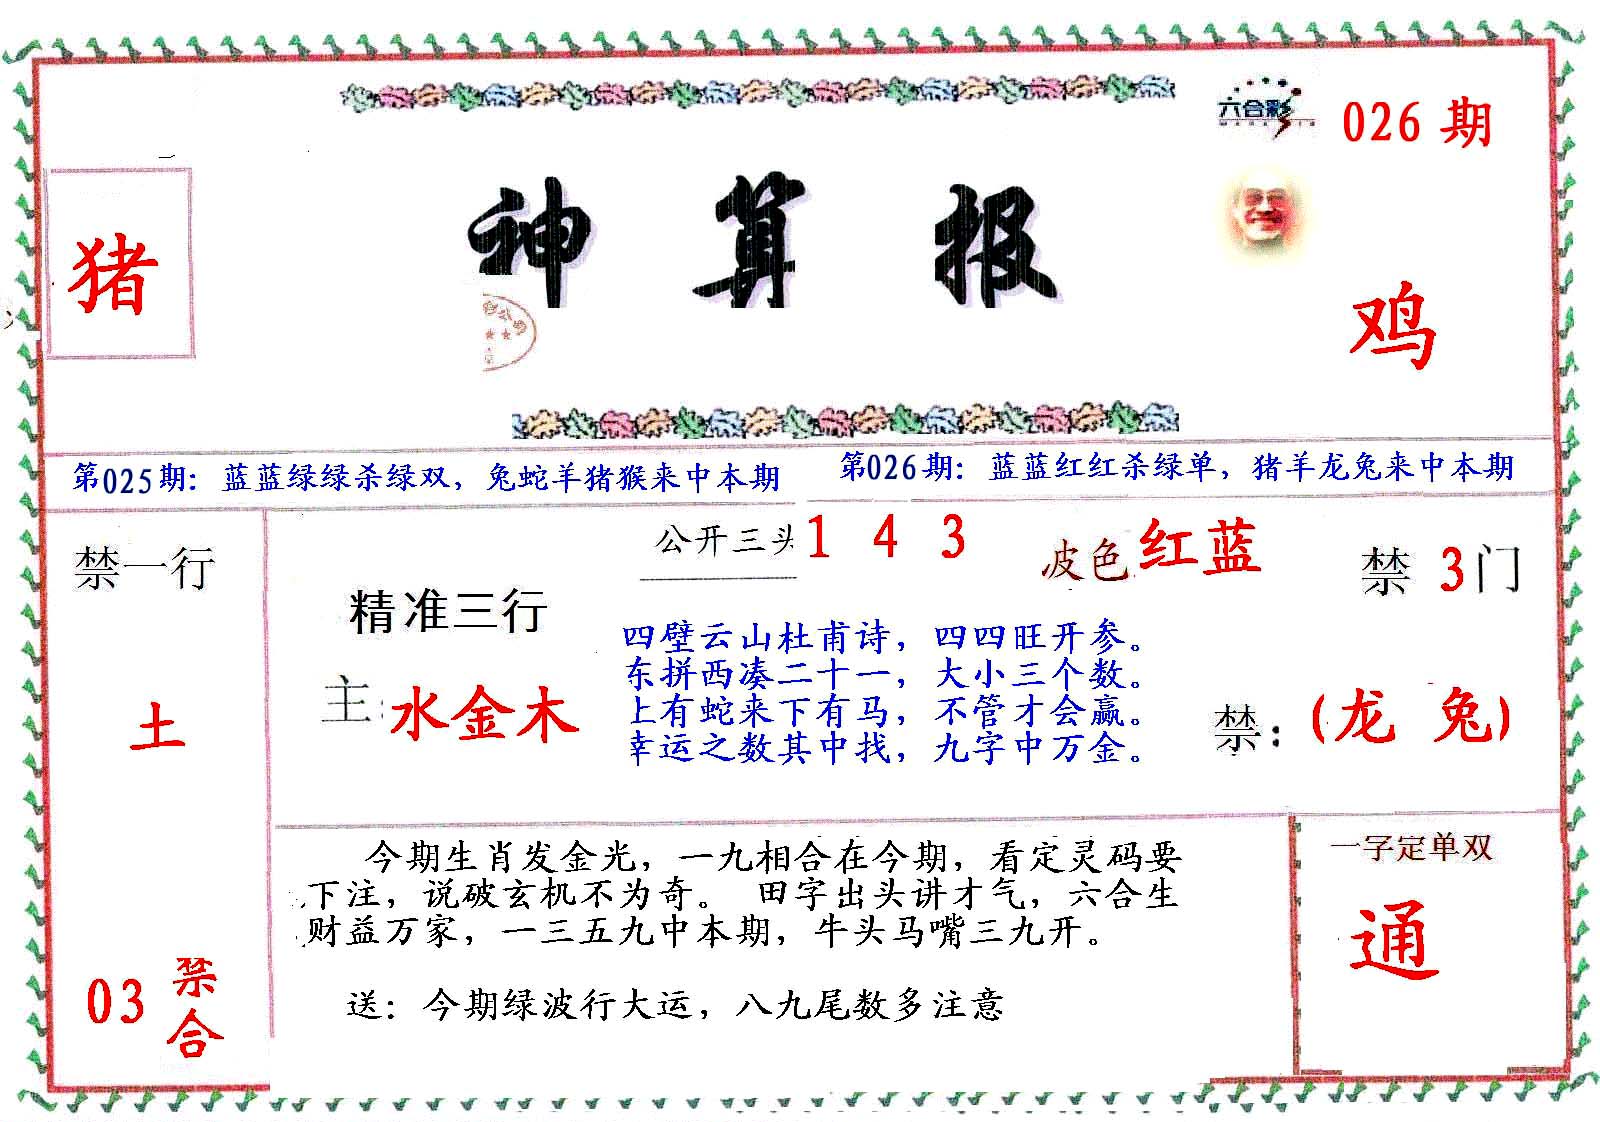 六合彩
026 期
猪
神算报
鸡
第025期：蓝蓝绿绿杀绿双，兔蛇羊猪猴来中本期
第026期：蓝蓝红红杀绿单，猪羊龙兔来中本期
禁一行
土
03 禁合
精准三行
主：水金木
公开三头 1 4 3
波色 红蓝
禁 3 门
四壁云山杜甫诗，四四旺开参。
东拼西凑二十一，大小三个数。
上有蛇来下有马，不管才会赢。
幸运之数其中找，九字中万金。
禁：(龙 兔)
今期生肖发金光，一九相合在今期，看定灵码要
下注，说破玄机不为奇。 田字出头讲才气，六合生
财益万家，一三五九中本期，牛头马嘴三九开。
送：今期绿波行大运，八九尾数多注意
一字定单双
通